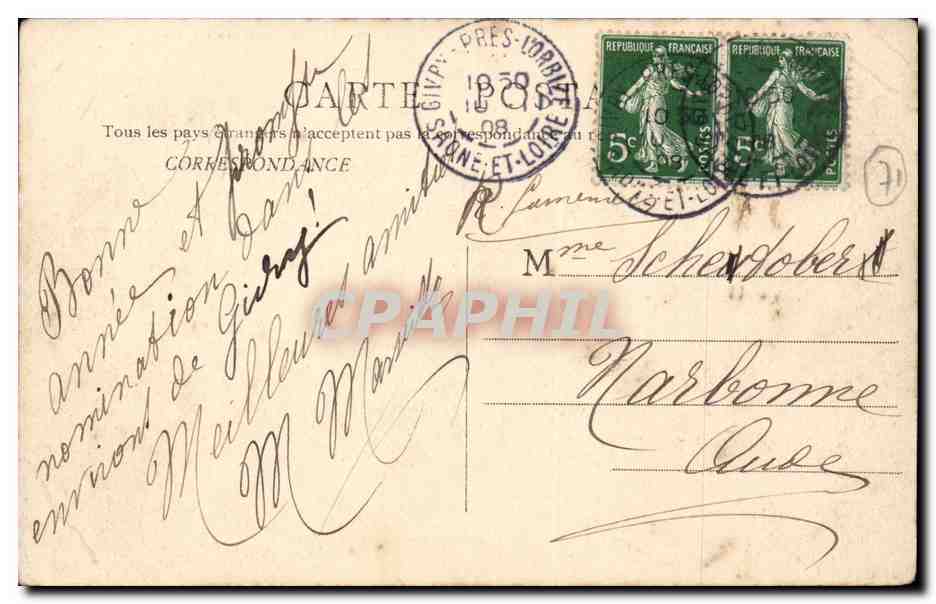 CARTE POSTA
Tous les pays étrangers n'acceptent pas la correspondance au re
CORRESPONDANCE
GIVRY-PRÈS-L'ORBIZE
10 30
10 11
08
SAÔNE-ET-LOIRE
REPUBLIQUE FRANÇAISE
5c
POSTES
REPUBLIQUE FRANÇAISE
5c
POSTES
71
Bonne
année et prompte
nomination dans les
environs de Givry!
Meilleures amitiés
M
R.
Mme
Narbonne
Aude
CPAPHIL